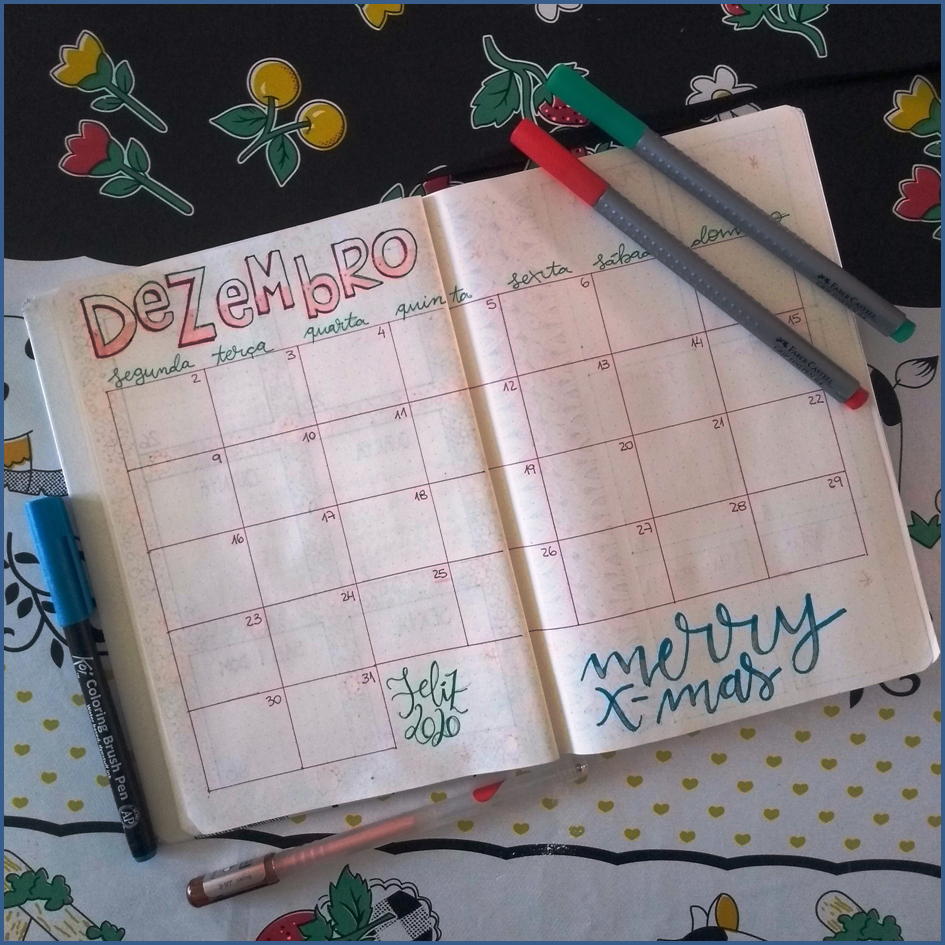 DEZEMBRO
segunda terça quarta quinta sexta sábado domingo
2 3 4 5 6 15
9 10 11 12 13 14 22
16 17 18 19 20 21 29
23 24 25 26 27 28
30 31
Feliz
2020
merry
x-mas
FABER-CASTELL
FABER-CASTELL
Koi Coloring Brush Pen AP